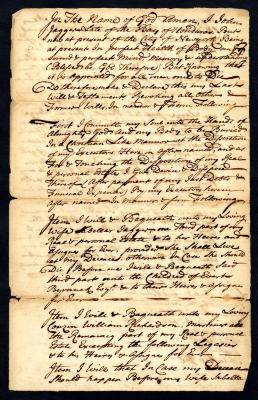 In The Name of God Amen, I John
Jaggar Late of the Bay of Honduras But
now at present of the City of New York Being
at present In perfect Health of Body and of
Sound & perfect Mind Memory & understanding
(Blessed be God Therefor) But knowing that
it is Appointed for all men once to Die
Do therefore make & Declare this my Last
Will & Testament & Revoke all other &
Former Wills, In manner & Form Following

First I Committ my Soul unto the Hands of
Almighty God And my Body to be Buried
In a Christian Like Manner at the Discretion
of my Executors Herein after named and as
for & Touching the Disposition of my Real
& personal Estate I Give Devise & Dispose
thereof After payment of my Just Debts &
Funeral Expences By my Executors herein
after named In manner & form Following

Item I Will & Bequeath unto my Loving
Wife Jaggar one Third part of my
Real & personal Estate & to her Heirs &
Assigns for Ever, provided she Shall Live
at my Decease otherwise In Case she Should
Die Before me I Will & Bequeath Said
third part unto the Children of
Esqr & to their Heirs & Assigns
for Ever

Item I Will & Bequeath unto my Loving
Cousin William Richardson, all
the Remaining part of my Real & personal
Estate Excepting the following Legacies
& to his Heirs & Assigns for Ever

Item I Will that In Case my Decease
Should happen Before my Wife